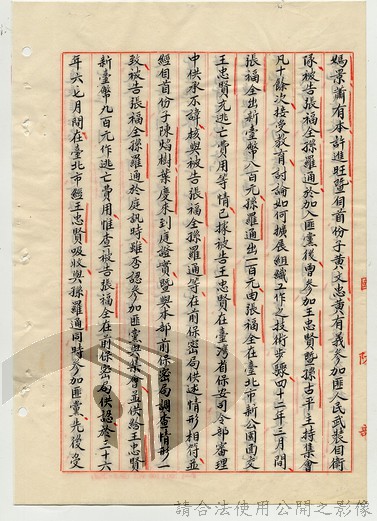 媽景蕭有本許進旺暨自首份子黃文忠黃有義參加匪人民武裝自衛
隊被告張福全孫羅通於加入匪黨後曾參加王忠賢暨孫古平主持集會
凡十餘次接受教育討論如何擴展組織工作之技術步驟四十二年二月間
張福全出新臺幣八百元孫羅通出一百元由張福全在臺北市新公園面交
王忠賢充逃亡費用等情已據被告王忠賢在臺灣省保安司令部審理
中供承不諱核與被告張福全孫羅通等在前保密局供述情形相符並
經自首份子陳焰樹葉慶來到庭證實暨與本部前保密局調查情形一
致被告張福全孫羅通於庭訊時雖否認參加匪黨與集會並供給王忠賢
新臺幣九百元作逃亡費用惟查被告張福全在前保密局供認於三十六
年六七月間在臺北市經王忠賢吸收與孫羅通同時參加匪黨先後受
國防部
請合法使用公開之影像